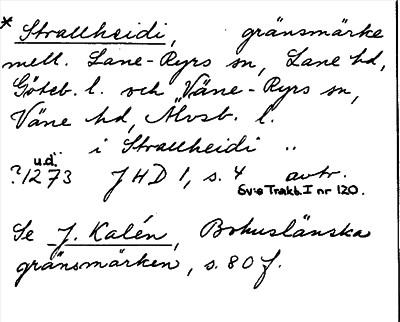 * Strallheidi, gränsmärke
mell. Lane-Ryrs sn, Lane hd,
Göteb. l. och Väne-Ryrs sn,
Väne hd, Älvsb. l.
.. i Strallheidi ..
u.d.
?1273 JHD 1, s. 4 avtr.
Sv:s Trakt. I nr 120.
Se J. Kalén, Bohuslänska
gränsmärken, s. 80 f.